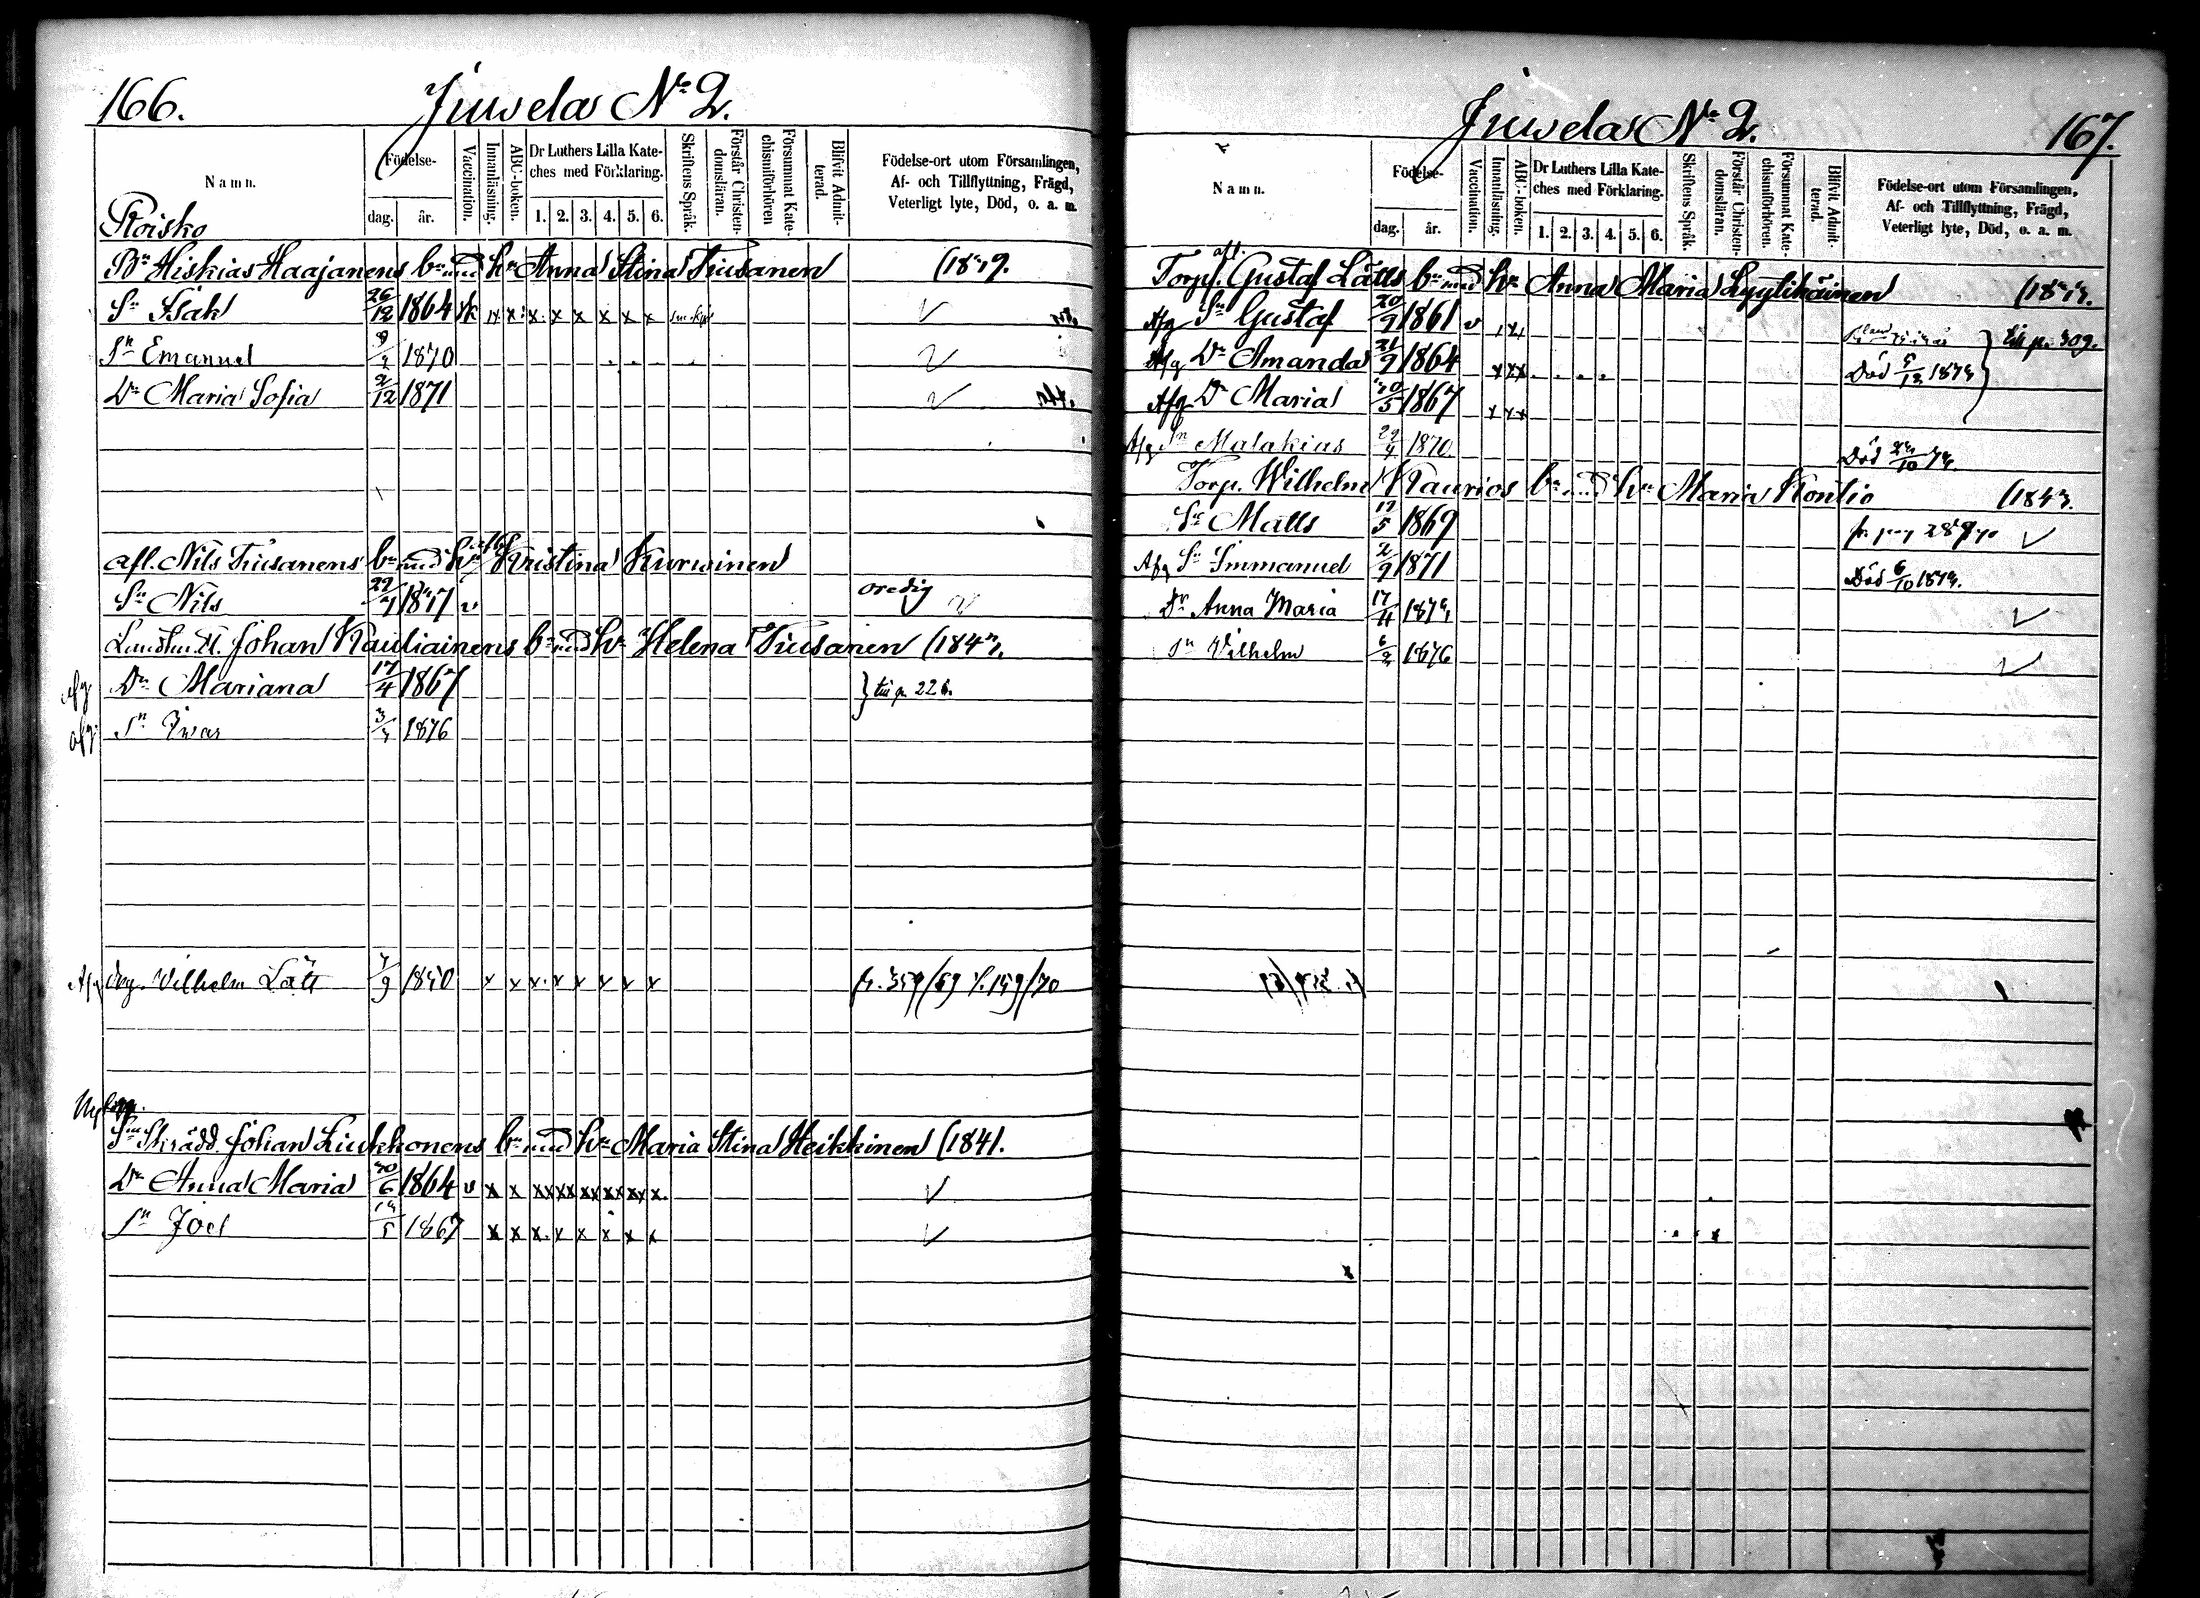 166.
Juvela No 2.
Namn.
Födelse-
dag.
år.
Vaccination.
Innanläsning.
ABC-boken.
Dr Luthers Lilla Kate-
ches med Förklaring.
1. 2. 3. 4. 5. 6.
Skriftens Språk.
Förstår Christen-
domsläran.
Försummat Kate-
chismiförhören
Blifvit Admit-
terad.
Födelse-ort utom Församlingen,
Af- och Tillflyttning, Frägd,
Veterligt lyte, Död, o. a. m.
Roisko
Bn Hiskias Haajanens bn med hu Anna Stina Tiusanen
Sn Isak 26/12 1864 x x x x x x
Sn Emanuel 1870
Dr Maria Sofia 2/12 1871
afl. Nils Tiusanens bn med hu Kristina Kurvinen
Sn Nils oredig
Johan Rautiainens bn med hu Helena Tiusanen
afg Dr Mariana 17/4 1867 till p. 226.
afg. Sn Ivar 1876
Afg Drg. Vilhelm Lätt x x x x x x x x
Sn Skrädd. Johan Liukkonens bn med hu Maria Stina Heikkinen (1841.
Dr Anna Maria 30/6 1864 v x x xx xx xx xx xx x.
Sn Joel 1867 x x x. x x x x x
Juvela No 2.
167.
Namn.
Födelse-
dag.
år.
Vaccination.
Innanläsning.
ABC-boken.
Dr Luthers Lilla Kate-
ches med Förklaring.
1. 2. 3. 4. 5. 6.
Skriftens Språk.
Förstår Christen-
domsläran.
Försummat Kate-
chismiförhören.
Blifvit Admit-
terad.
Födelse-ort utom Församlingen,
Af- och Tillflyttning, Frägd,
Veterligt lyte, Död, o. a. m.
afl.
Torp. Gustaf Lätts bn med hu Anna Maria Lyytikäinen
Afg Sn Gustaf 20/9 1861 v till p. 309.
Afg Dr Amanda 21/9 1864 x x x Död
Afg Dr Maria 1867 x x x
Afg Sn Malakias 1870 Död
Torp. Wilhelm Kaurios bn med hu Maria Kontio
Sn Matts 1869
Afg Sn Immanuel 2/9 1871 Död
Dr Anna Maria 17/11
Sn Vilhelm 1876